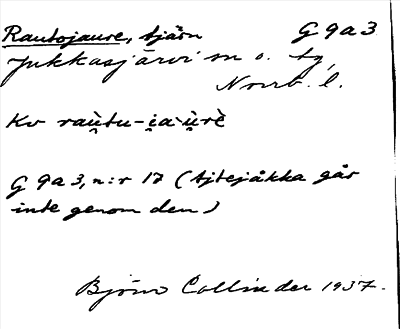 Rautojaure, tjärn G 9a3
Jukkasjärvi sn o. tg,
Norrb. l.
Kv raù̯tu-i̯a·u̯rè
G 9a3, n:r 17 (Ajtejåkka går
inte genom den)
Björn Collinder 1937.